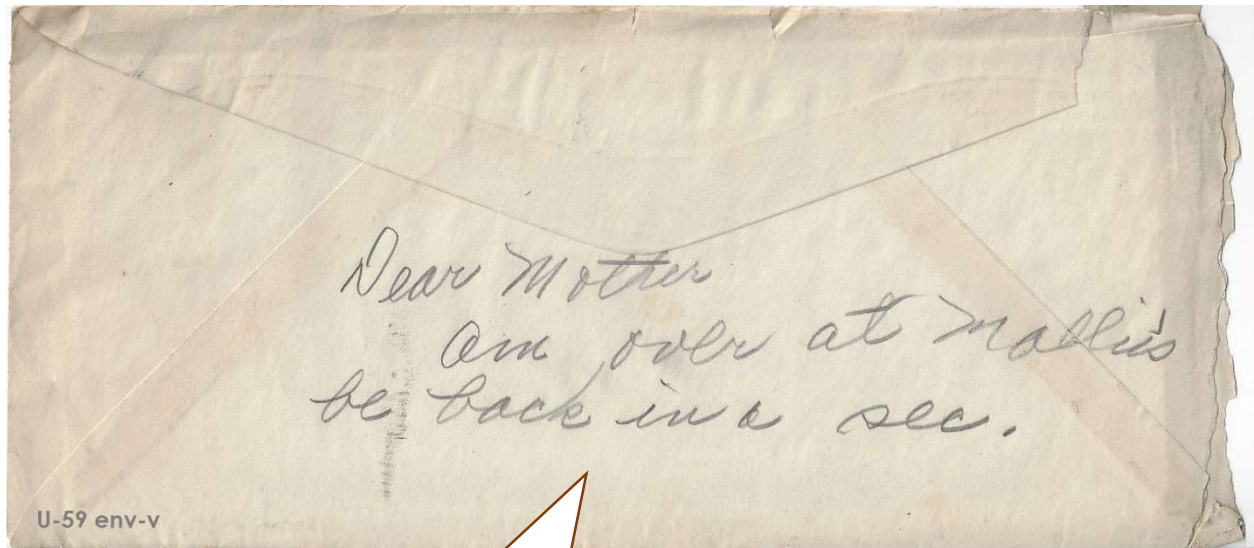 Dear Mother
Am over at Mollie's
be back in a sec.
U-59 env-v